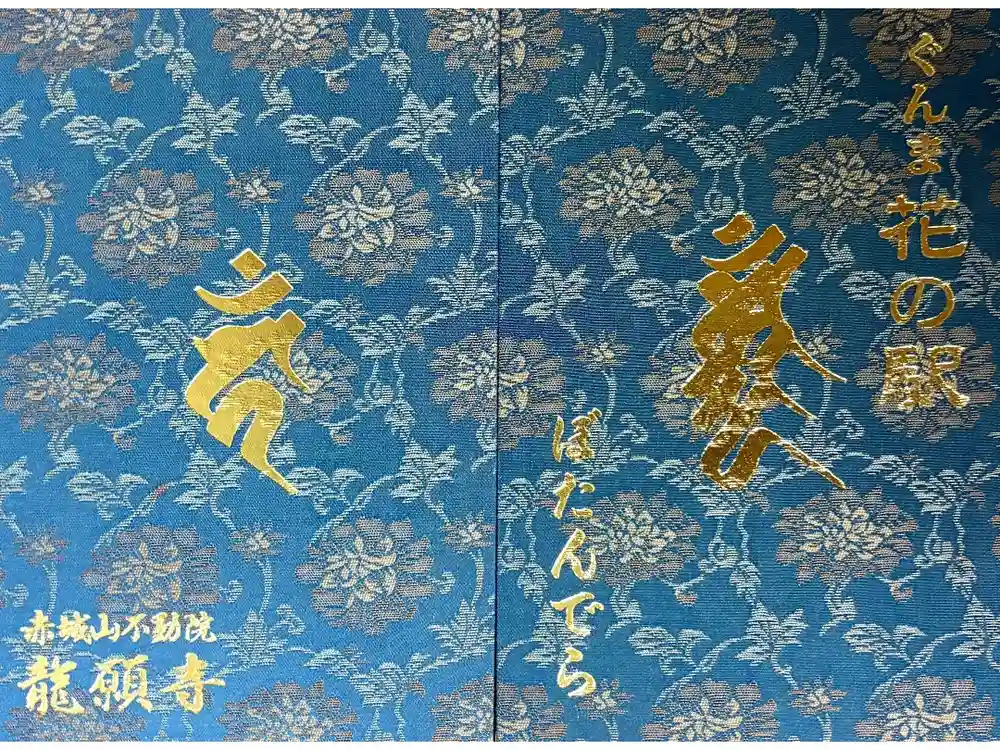 ぐんま花の駅
ぼたんでら
赤城山不動院
龍願寺